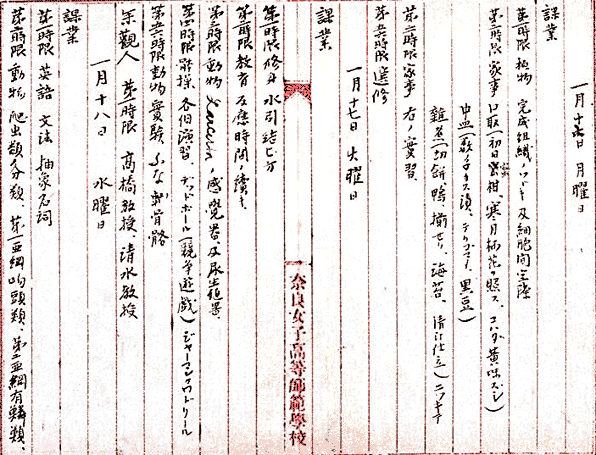 一月十六日 月曜日
課業
第一時限 植物 完成組織ノツヾキ 及細胞間空隙
第二時限 家事 口取(初日蜜柑、寒月梅花ノ照ス、コハダ黄味ズシ)
中皿(数ノ子キス漬、テリゴマメ、黒豆)
雑煮(切餅鴨揃セリ、海苔、清汁仕立)
第三時限 家事 右ノ實習
第六時限 選修
一月十七日 火曜日
課業
奈良女子高等師範學校
第一時限 修身 水引結ビ方
第二時限 教育 反應時間ノ續キ
第三時限 動物 感覺器及尿生殖器
第四時限 體操 各個演習、デッドボール(競争遊戯)ジャーマンクワドリール
第六時限 動物實驗 ふな部骨骼
参觀人 第二時限 高橋教授、清水教授
一月十八日 水曜日
課業
第一時限 英語 文法 抽象名詞
第二時限 動物 爬虫類分類、第一亜綱 喙頭類、第二亜綱 有鱗類、